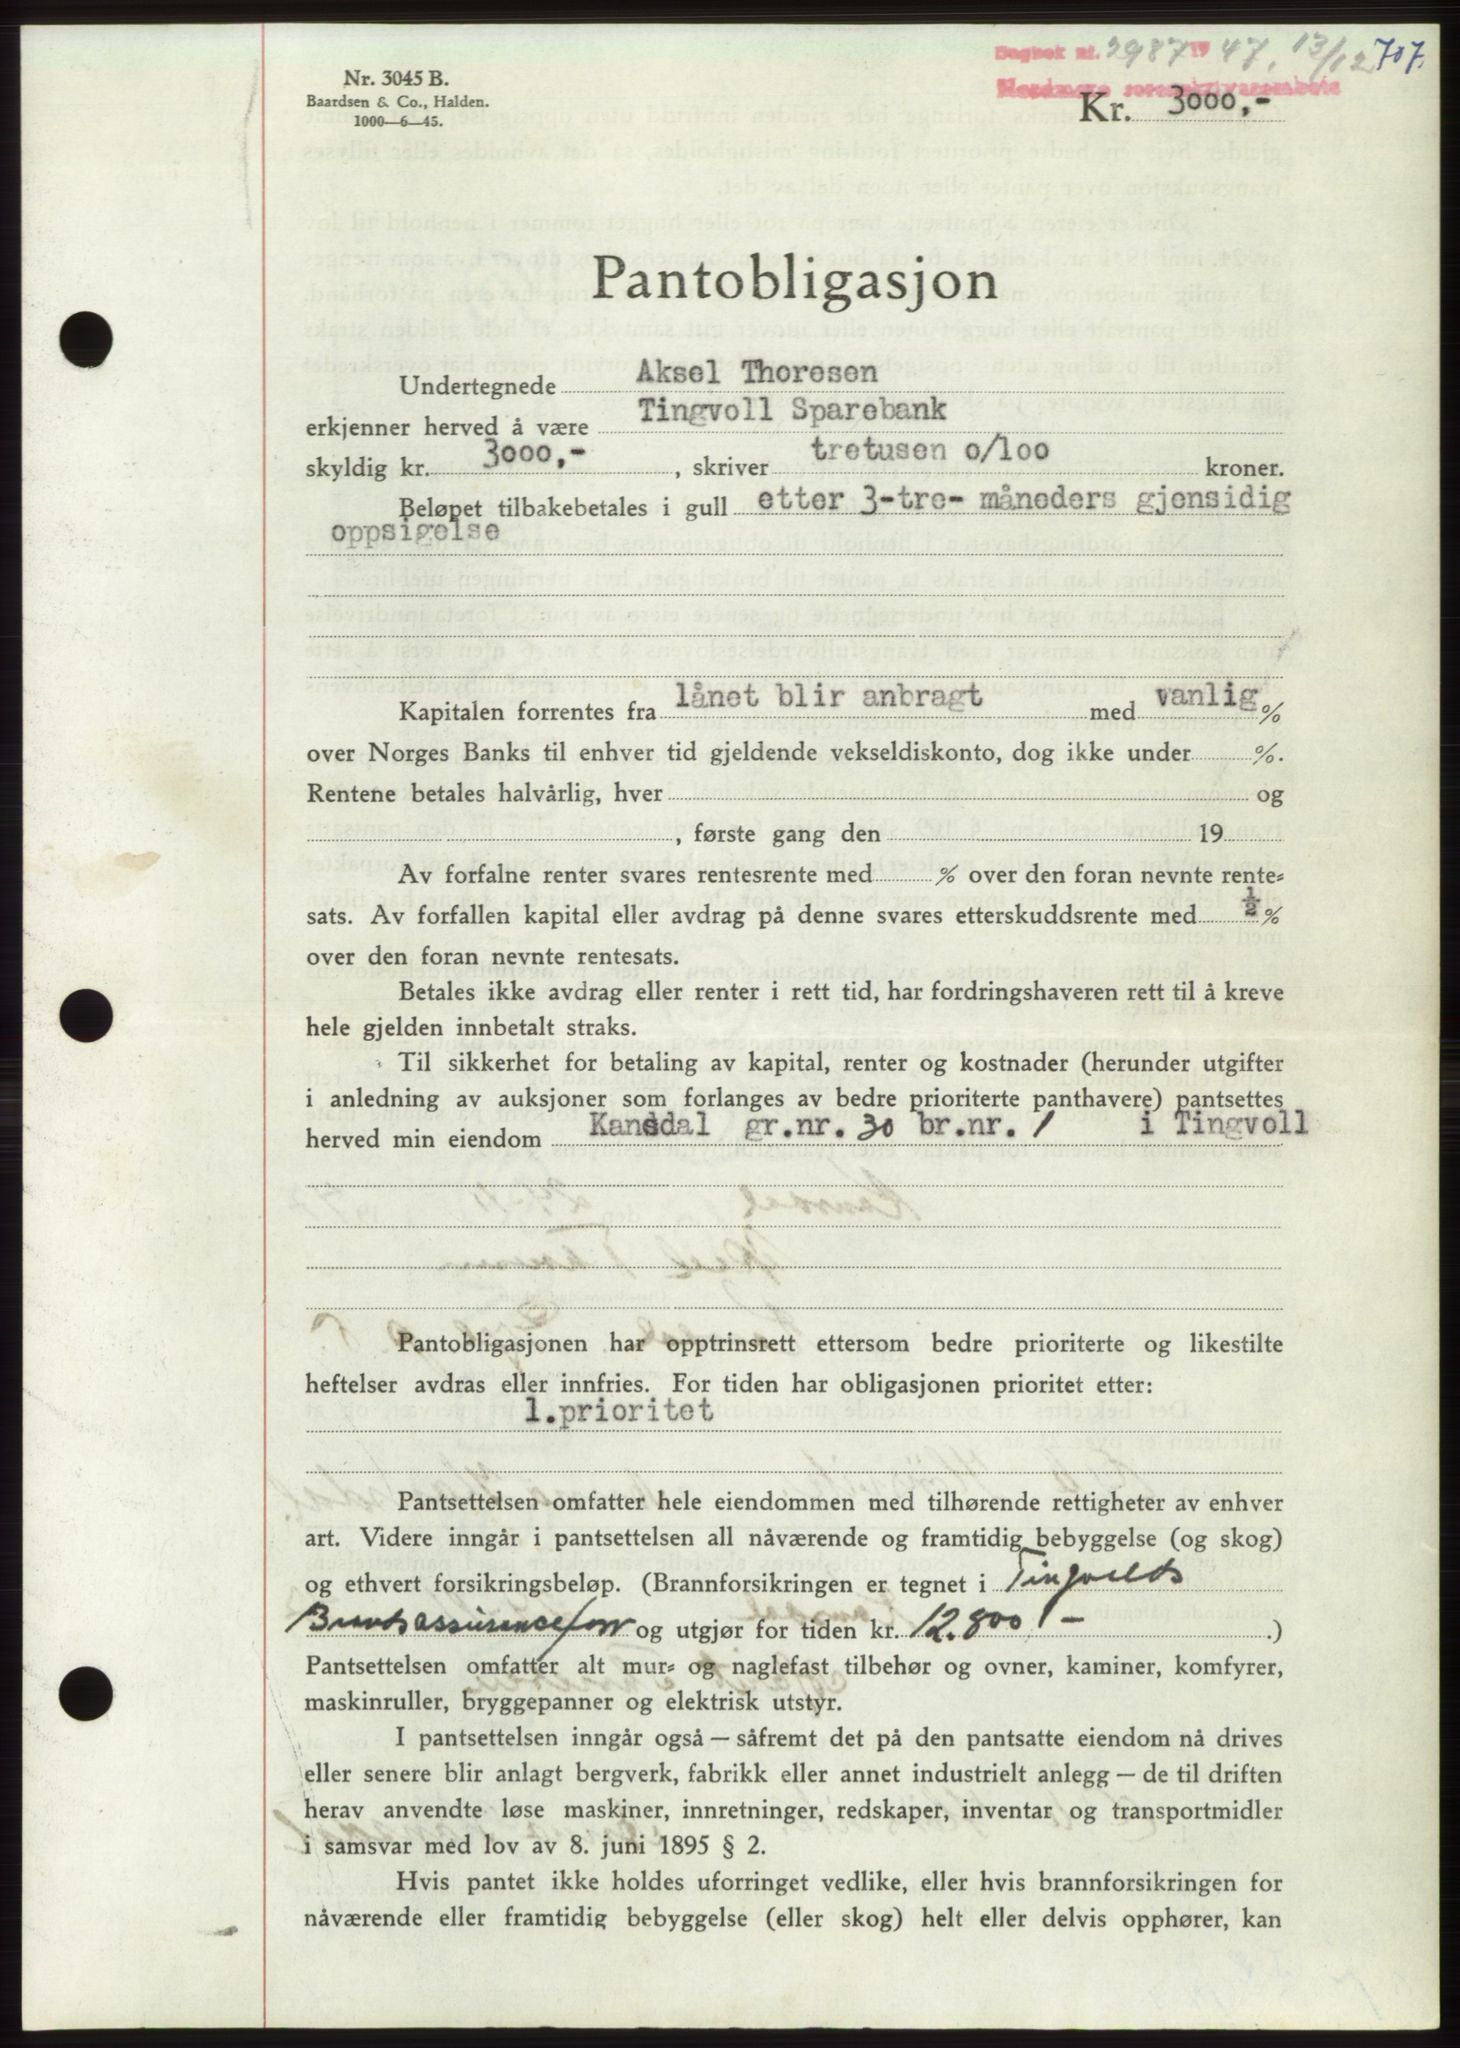 Dagbok nr. 2987 19 47, 13/12 707.
Nordmøre sorenskriverembete
Nr. 3045 B.
Baardsen & Co., Halden.
1000—6—45.
Kr. 3000,-
Pantobligasjon
Undertegnede Aksel Thoresen
erkjenner herved å være Tingvoll Sparebank
skyldig kr. 3000,- , skriver tretusen o/loo kroner.
Beløpet tilbakebetales i gull etter 3-tre- måneders gjensidig
oppsigelse
Kapitalen forrentes fra lånet blir anbragt med vanlig %
over Norges Banks til enhver tid gjeldende vekseldiskonto, dog ikke under %.
Rentene betales halvårlig, hver og
, første gang den 19
Av forfalne renter svares rentesrente med % over den foran nevnte rente=
sats. Av forfallen kapital eller avdrag på denne svares etterskuddsrente med ½ %
over den foran nevnte rentesats.
Betales ikke avdrag eller renter i rett tid, har fordringshaveren rett til å kreve
hele gjelden innbetalt straks.
Til sikkerhet for betaling av kapital, renter og kostnader (herunder utgifter
i anledning av auksjoner som forlanges av bedre prioriterte panthavere) pantsettes
herved min eiendom Kansdal gr.nr. 30 br.nr. 1 i Tingvoll
Pantobligasjonen har opptrinsrett ettersom bedre prioriterte og likestilte
heftelser avdras eller innfries. For tiden har obligasjonen prioritet etter:
1.prioritet
Pantsettelsen omfatter hele eiendommen med tilhørende rettigheter av enhver
art. Videre inngår i pantsettelsen all nåværende og framtidig bebyggelse (og skog)
og ethvert forsikringsbeløp. (Brannforsikringen er tegnet i Tingvolds
Brandsassuranceforr og utgjør for tiden kr. 12.800,- .)
Pantsettelsen omfatter alt mur= og naglefast tilbehør og ovner, kaminer, komfyrer,
maskinruller, bryggepanner og elektrisk utstyr.
I pantsettelsen inngår også — såfremt det på den pantsatte eiendom nå drives
eller senere blir anlagt bergverk, fabrikk eller annet industrielt anlegg — de til driften
herav anvendte løse maskiner, innretninger, redskaper, inventar og transportmidler
i samsvar med lov av 8. juni 1895 § 2.
Hvis pantet ikke holdes uforringet vedlike, eller hvis brannforsikringen for
nåværende eller framtidig bebyggelse (eller skog) helt eller delvis opphører, kan